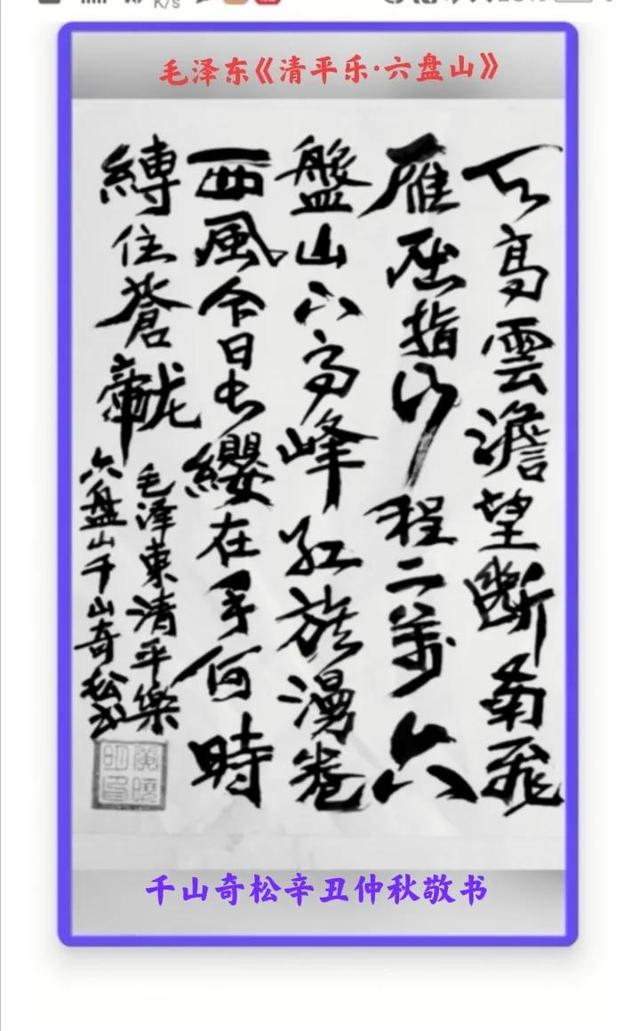 K/s
毛泽东《清平乐·六盘山》
天高雲澹望斷南飛
雁屈指行程二萬六
盤山上高峰紅旗漫卷
西風今日長纓在手何時
縛住蒼龍
毛泽東清平樂
六盘山千山奇松书
千山奇松辛丑仲秋敬书